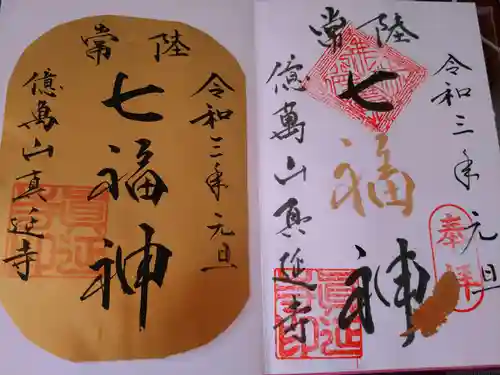 常陸
令和三年元旦
七福神
億萬山真延寺
真延寺印
常陸
令和三年元旦
奉拝
七福神
億萬山真延寺
真延寺印